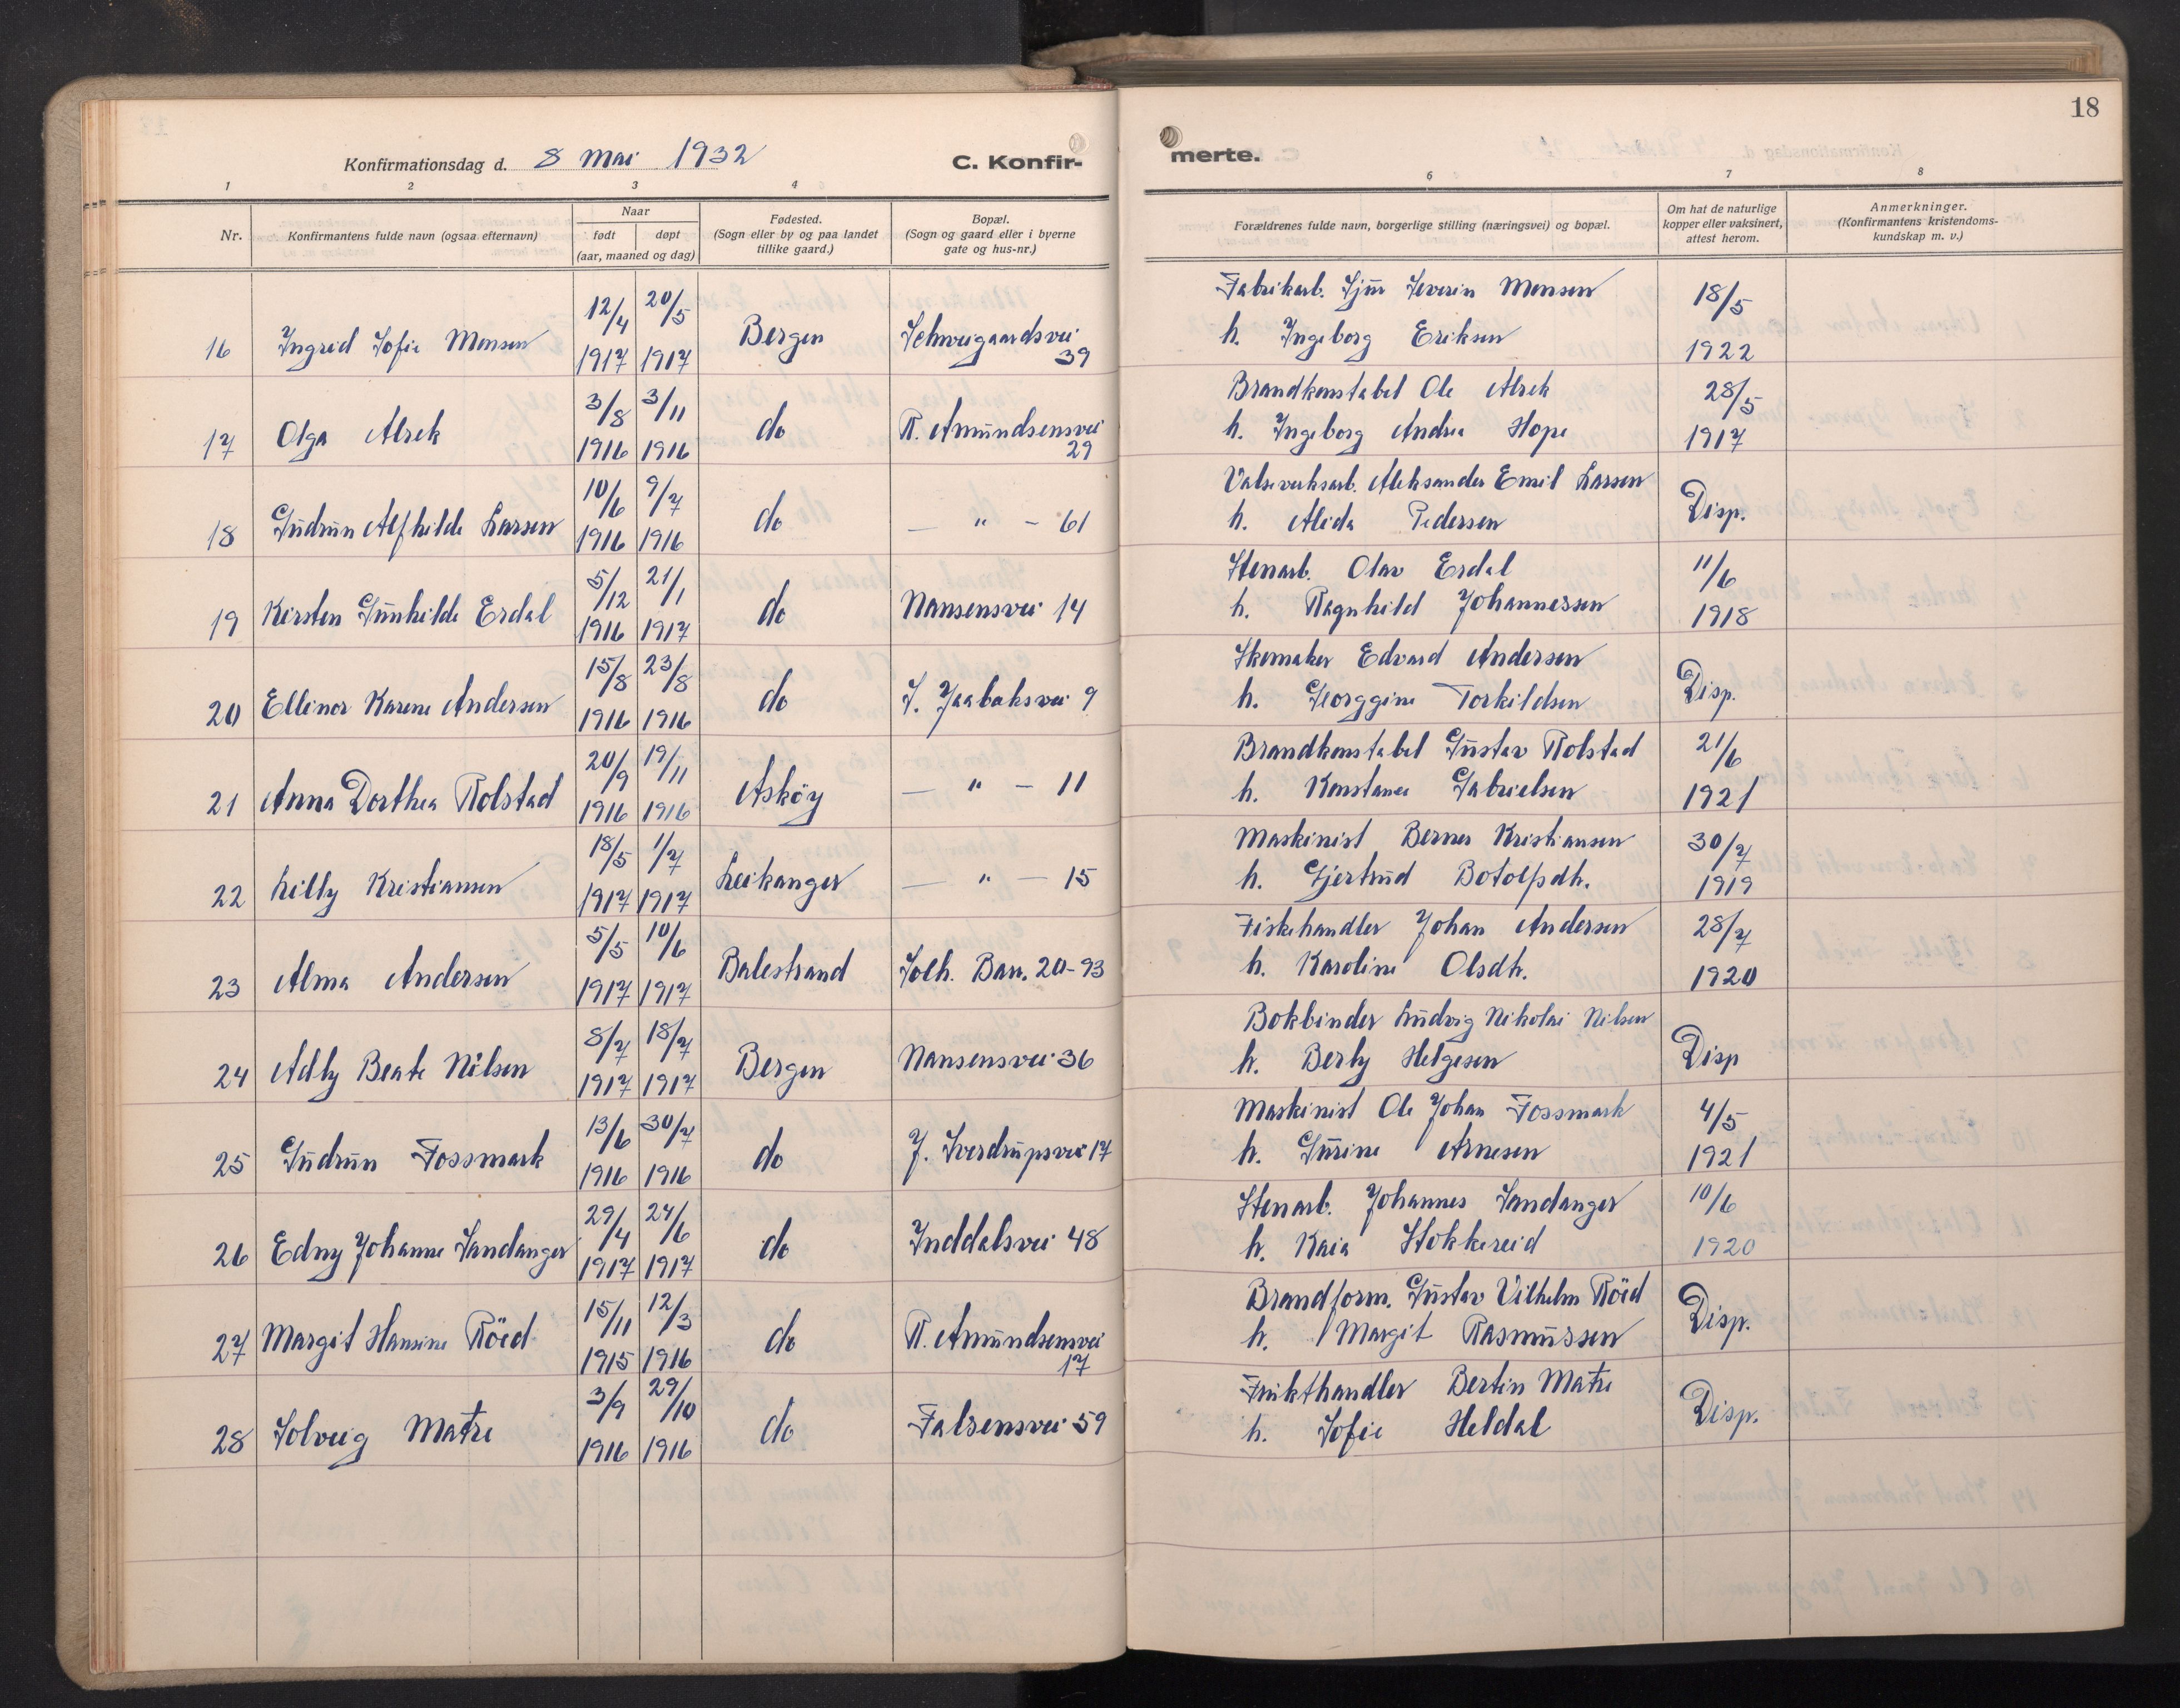 18
Konfirmationsdag d. 8 Mai 1932
C. Konfir-
merte.
1 2 3 4 6 7 8
Nr.
Konfirmantens fulde navn (ogsaa efternavn)
Naar
født døpt
(aar, maaned og dag)
Fødested.
(Sogn eller by og paa landet
tillike gaard.)
Bopæl.
(Sogn og gaard eller i byerne
gate og hus-nr.)
Forældrenes fulde navn, borgerlige stilling (næringsvei) og bopæl.
Om hat de naturlige
kopper eller vaksinert,
attest herom.
Anmerkninger.
(Konfirmantens kristendoms-
kundskap m. v.)
12/4 20/5 Fabrikarb. Sjur Severin Monsen 18/5
16 Ingrid Sofie Monsen 1917 1917 Bergen Schweigaardsvei 39 h. Ingeborg Eriksen 1922
3/8 3/11 Brandkonstabel Ole Alrek 28/5
17 Olga Alrek 1916 1916 do R. Amundsensvei 29 h. Ingeborg Andrea Hope 1917
10/6 9/7 Valseverksarb. Aleksander Emil Larsen
18 Gudrun Alfhilde Larsen 1916 1916 do — " — 61 h. Alida Pedersen Disp.
5/12 21/1 Stenarb. Olav Erdal 11/6
19 Kirsten Gunhilde Erdal 1916 1917 do Nansensvei 14 h. Ragnhild Johannessen 1918
15/8 23/8 Skomaker Edvard Andersen
20 Ellinor Karene Andersen 1916 1916 do S. Jaabaksvei 9 h. Georggine Torkildsen Disp.
20/9 19/11 Brandkonstabel Gustav Rolstad 21/6
21 Anna Dorthea Rolstad 1916 1916 Askøy — " — 11 h. Konstanse Gabrielsen 1921
18/5 1/7 Maskinist Berner Kristiansen 30/7
22 Lilly Kristiansen 1917 1917 Leikanger — " — 15 h. Gjertrud Botolpdh. 1919
5/5 10/6 Fiskehandler Johan Andersen 28/7
23 Alma Andersen 1917 1917 Balestrand Solh. Bar. 20-93 h. Karoline Olsdh. 1920
8/7 18/7 Bokbinder Ludvig Nikolai Nilsen
24 Adly Beate Nilsen 1917 1917 Bergen Nansensvei 36 h. Berly Helgesen Disp
13/6 30/7 Maskinist Ole Johan Fossmark 4/5
25 Gudrun Fossmark 1916 1916 do J. Sverdrupsvei 17 h. Gurine Arnesen 1921
29/4 24/6 Stenarb. Johannes Sandanger 10/6
26 Edny Johanne Sandanger 1917 1917 do Inddalsvei 48 h. Kaia Stokkereid 1920
15/11 12/3 Brandform. Gustav Vilhelm Röed
27 Margit Hansine Röed 1915 1916 do R. Amundsensvei 17 h. Margit Rasmussen Disp.
3/9 29/10 Frukthandler Bertin Matre
28 Solveig Matre 1916 1916 do Falsensvei 59 h. Sofie Heldal Disp.